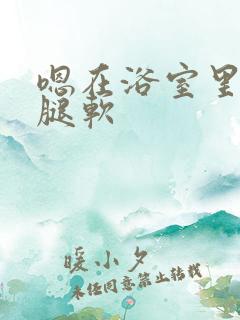 嗯在浴室里
腿软
暖小夕
未经同意禁止转载